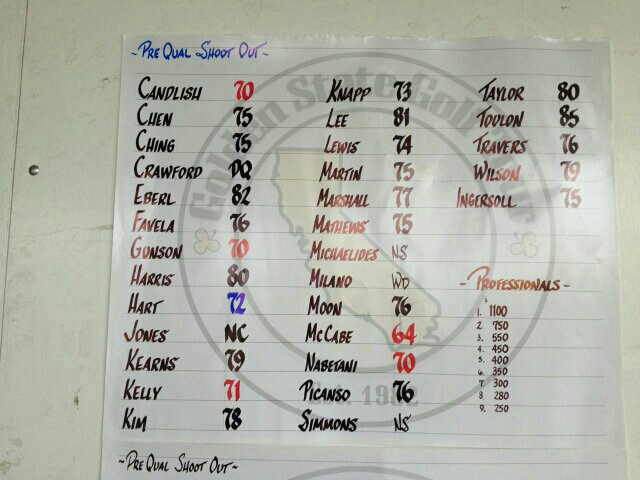 ~PRE QUAL SHOOT OUT~
CANDLISH 70
CHEN 75
CHING 75
CRAWFORD DQ
EBERL 82
FAVELA 76
GUNSON 70
HARRIS 80
HART 72
JONES NC
KEARNS 79
KELLY 71
KIM 78
KNAPP 73
LEE 81
LEWIS 74
MARTIN 75
MARSHALL 77
MATHEWS 75
MICHAELIDES NS
MILANO WD
MOON 76
MCCABE 64
NABETANI 70
PICANSO 76
SIMMONS NS
TAYLOR 80
TOULON 85
TRAVERS 76
WILSON 79
INGERSOLL 75
- PROFESSIONALS -
$
1. 1100
2. 750
3. 550
4. 450
5. 400
6. 350
7. 300
8. 280
9. 250
Golden State Golf Tour
Est.
~PRE QUAL SHOOT OUT~